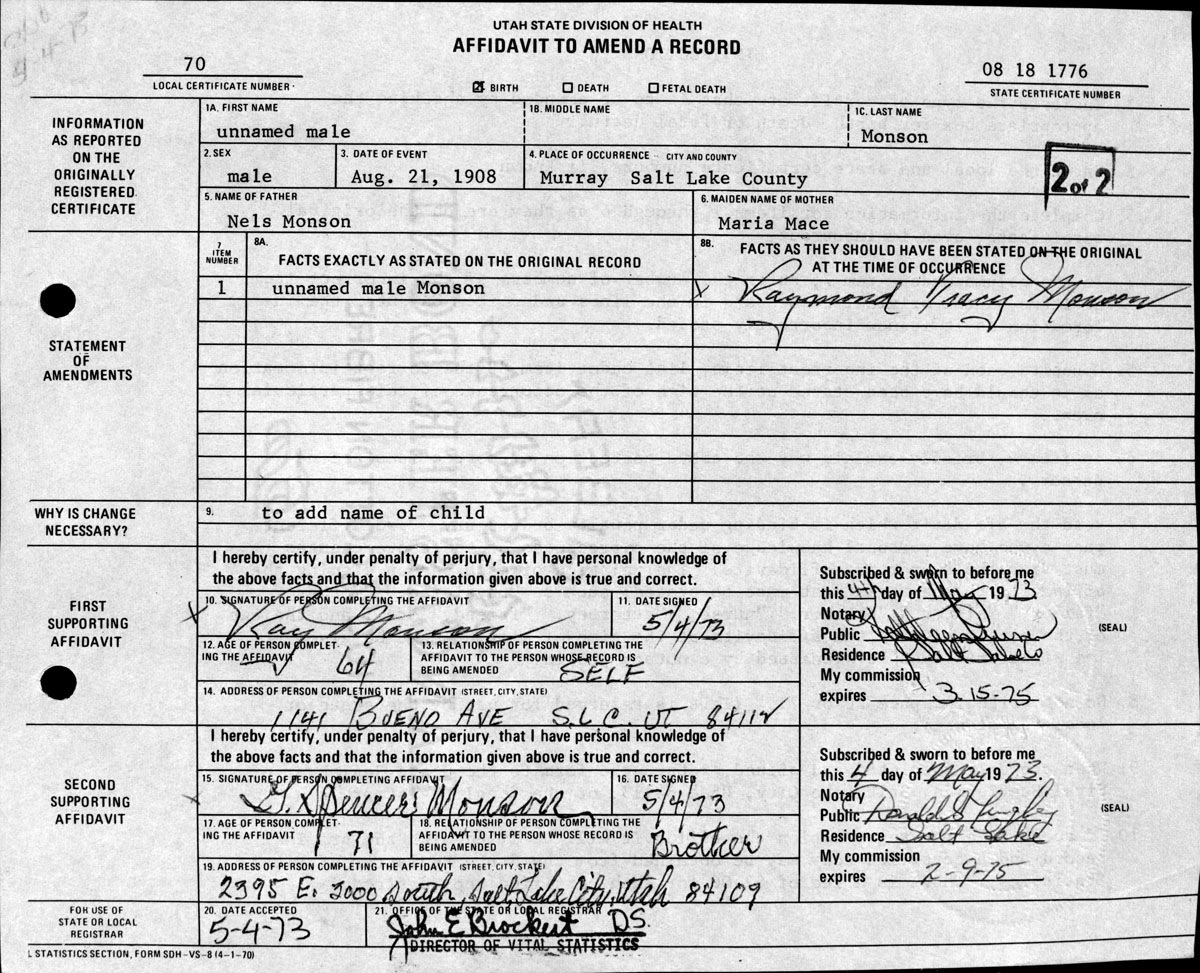 UTAH STATE DIVISION OF HEALTH
AFFIDAVIT TO AMEND A RECORD
70
LOCAL CERTIFICATE NUMBER
☒ BIRTH ☐ DEATH ☐ FETAL DEATH
08 18 1776
STATE CERTIFICATE NUMBER
INFORMATION AS REPORTED ON THE ORIGINALLY REGISTERED CERTIFICATE
1A. FIRST NAME
unnamed male
1B. MIDDLE NAME
1C. LAST NAME
Monson
2. SEX
male
3. DATE OF EVENT
Aug. 21, 1908
4. PLACE OF OCCURRENCE - CITY AND COUNTY
Murray Salt Lake County
2 of 2
5. NAME OF FATHER
Nels Monson
6. MAIDEN NAME OF MOTHER
Maria Mace
STATEMENT OF AMENDMENTS
7 ITEM NUMBER
8A. FACTS EXACTLY AS STATED ON THE ORIGINAL RECORD
8B. FACTS AS THEY SHOULD HAVE BEEN STATED ON THE ORIGINAL
AT THE TIME OF OCCURRENCE
1 unnamed male Monson x Raymond Tracy Monson
WHY IS CHANGE NECESSARY?
9. to add name of child
FIRST SUPPORTING AFFIDAVIT
I hereby certify, under penalty of perjury, that I have personal knowledge of
the above facts and that the information given above is true and correct.
10. SIGNATURE OF PERSON COMPLETING THE AFFIDAVIT
x Ray Monson
11. DATE SIGNED
5/4/73
12. AGE OF PERSON COMPLETING THE AFFIDAVIT
64
13. RELATIONSHIP OF PERSON COMPLETING THE
AFFIDAVIT TO THE PERSON WHOSE RECORD IS
BEING AMENDED
SELF
14. ADDRESS OF PERSON COMPLETING THE AFFIDAVIT (STREET, CITY, STATE)
1141 BUENO AVE S.L.C. UT 84112
Subscribed & sworn to before me
this 4th day of May 1973.
Notary
Public
Residence Salt Lake
My commission
expires 3-15-75
(SEAL)
SECOND SUPPORTING AFFIDAVIT
I hereby certify, under penalty of perjury, that I have personal knowledge of
the above facts and that the information given above is true and correct.
15. SIGNATURE OF PERSON COMPLETING AFFIDAVIT
x G. Spencer Monson
16. DATE SIGNED
5/4/73
17. AGE OF PERSON COMPLETING THE AFFIDAVIT
71
18. RELATIONSHIP OF PERSON COMPLETING THE
AFFIDAVIT TO THE PERSON WHOSE RECORD IS
BEING AMENDED
Brother
19. ADDRESS OF PERSON COMPLETING THE AFFIDAVIT (STREET, CITY, STATE)
2395 E. 3000 South, Salt Lake City, Utah 84109
Subscribed & sworn to before me
this 4 day of May 1973.
Notary
Public Donald
Residence Salt Lake
My commission
expires 2-9-75
(SEAL)
FOR USE OF STATE OR LOCAL REGISTRAR
20. DATE ACCEPTED
5-4-73
21. OFFICE OF THE STATE OR LOCAL REGISTRAR
John E Brockert DS.
DIRECTOR OF VITAL STATISTICS
L STATISTICS SECTION, FORM SDH-VS-8 (4-1-70)